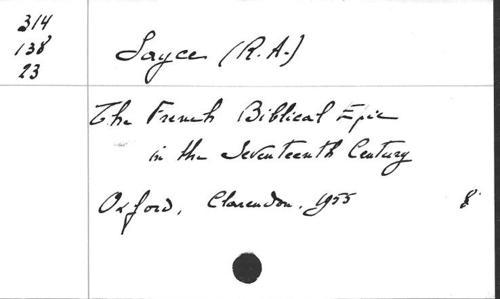 314
138
23
Sayce (R.A.)
The French Biblical Epic
in the Seventeenth Century
Oxford, Clarendon, 1955 8°